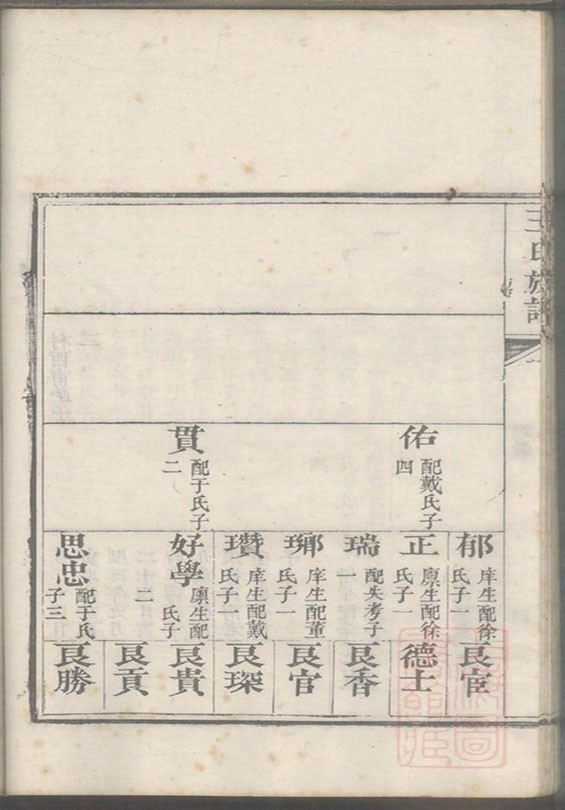 王氏族譜
佑
配戴氏子
四
貫
配于氏子
二
郁
庠生配徐
氏子一
正
廩生配徐
氏子一
瑞
配失考子
一
琊
庠生配董
氏子一
瓚
庠生配戴
氏子一
好學
廩生配
氏子
二
思忠
配于氏
子三
良宦
德士
良香
良官
良琛
良貴
良貢
良勝